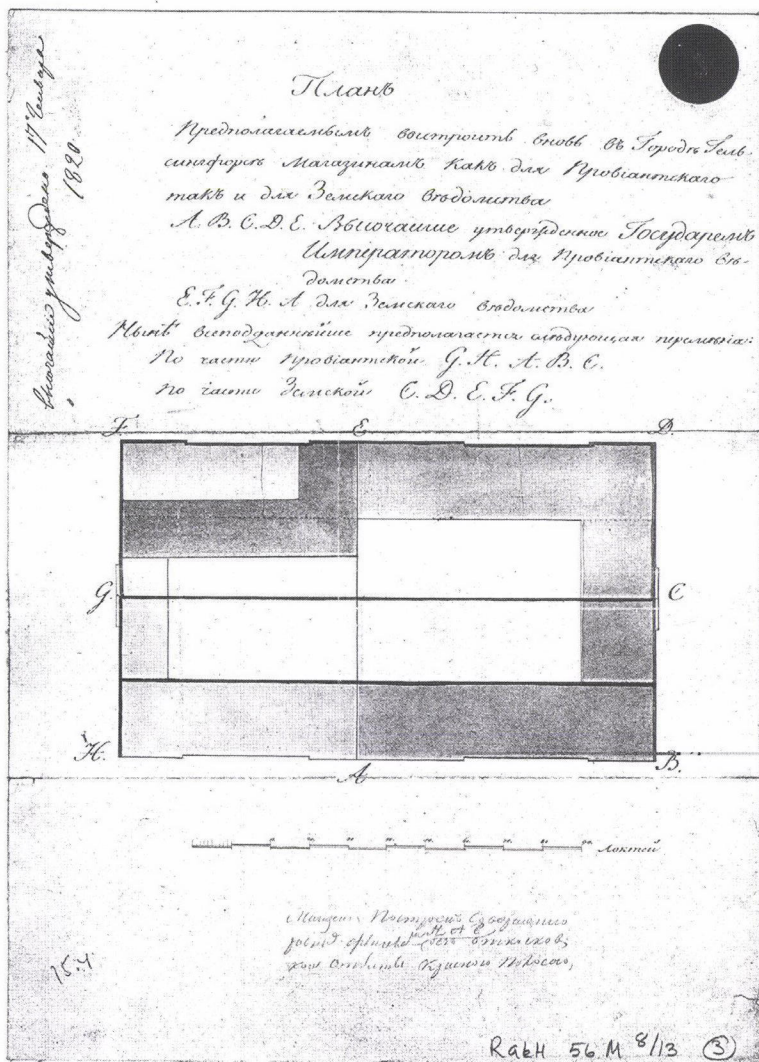 Высочайше утверждено 17 Генваря
1820.
Планъ
Предполагаемымъ выстроить вновь въ Городѣ Гель
сингфорсѣ Магазинамъ Какъ для Провіантскаго
такъ и для Земскаго вѣдомства
A. B. C. D. E. Высочайше утвержденное Государемъ
Императоромъ для Провіантскаго вѣ-
домства.
E. F. G. H. A для Земскаго вѣдомства
Нынѣ всеподданнѣйше предполагается слѣдующая перемѣна:
По части Провіантской G. H. A. B. C.
по части Земской C. D. E. F. G.
F. E D.
G. C
H. A B.
Локтей
15.4
RakH 56 M 8/13 3